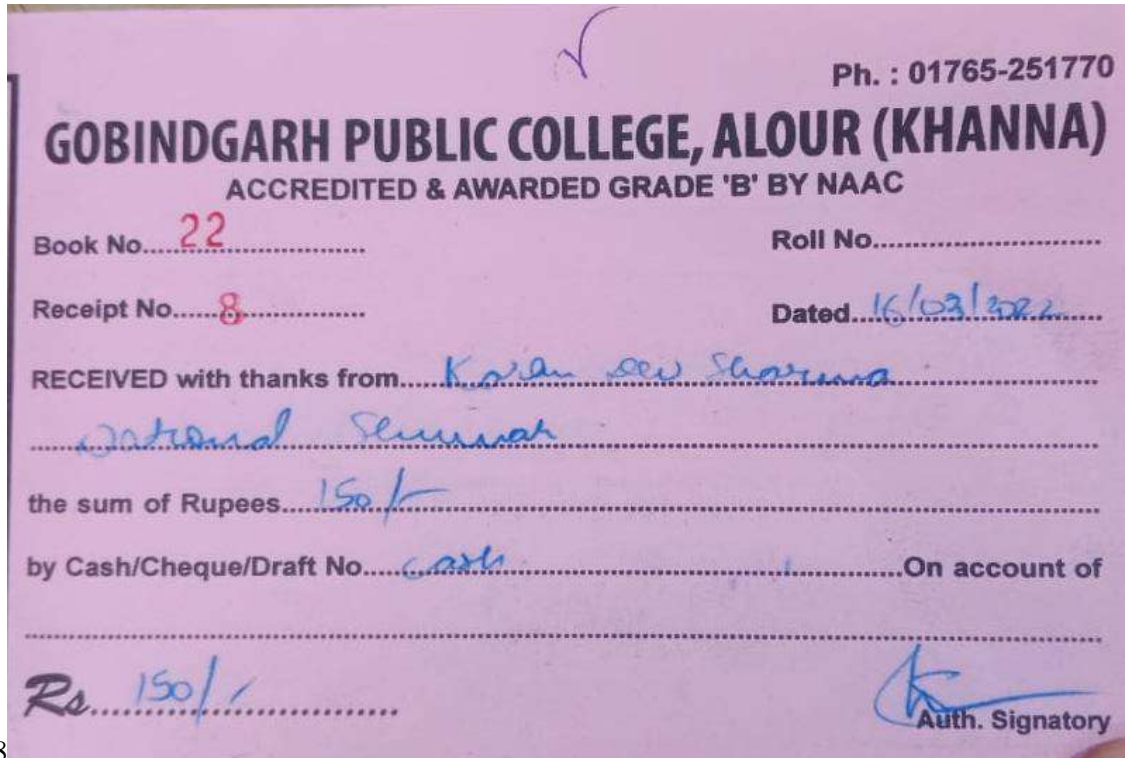 Ph. : 01765-251770
GOBINDGARH PUBLIC COLLEGE, ALOUR (KHANNA)
ACCREDITED & AWARDED GRADE 'B' BY NAAC
Book No.....22........................ Roll No.............................
Receipt No......8................ Dated...16/03/2022.....
RECEIVED with thanks from.....Karan Dev Sharma..........................
......National Seminar......................................................
the sum of Rupees....150/-..................................................
by Cash/Cheque/Draft No.....cash..............................On account of
............................................................................
Rs....150/-....................
Auth. Signatory
8